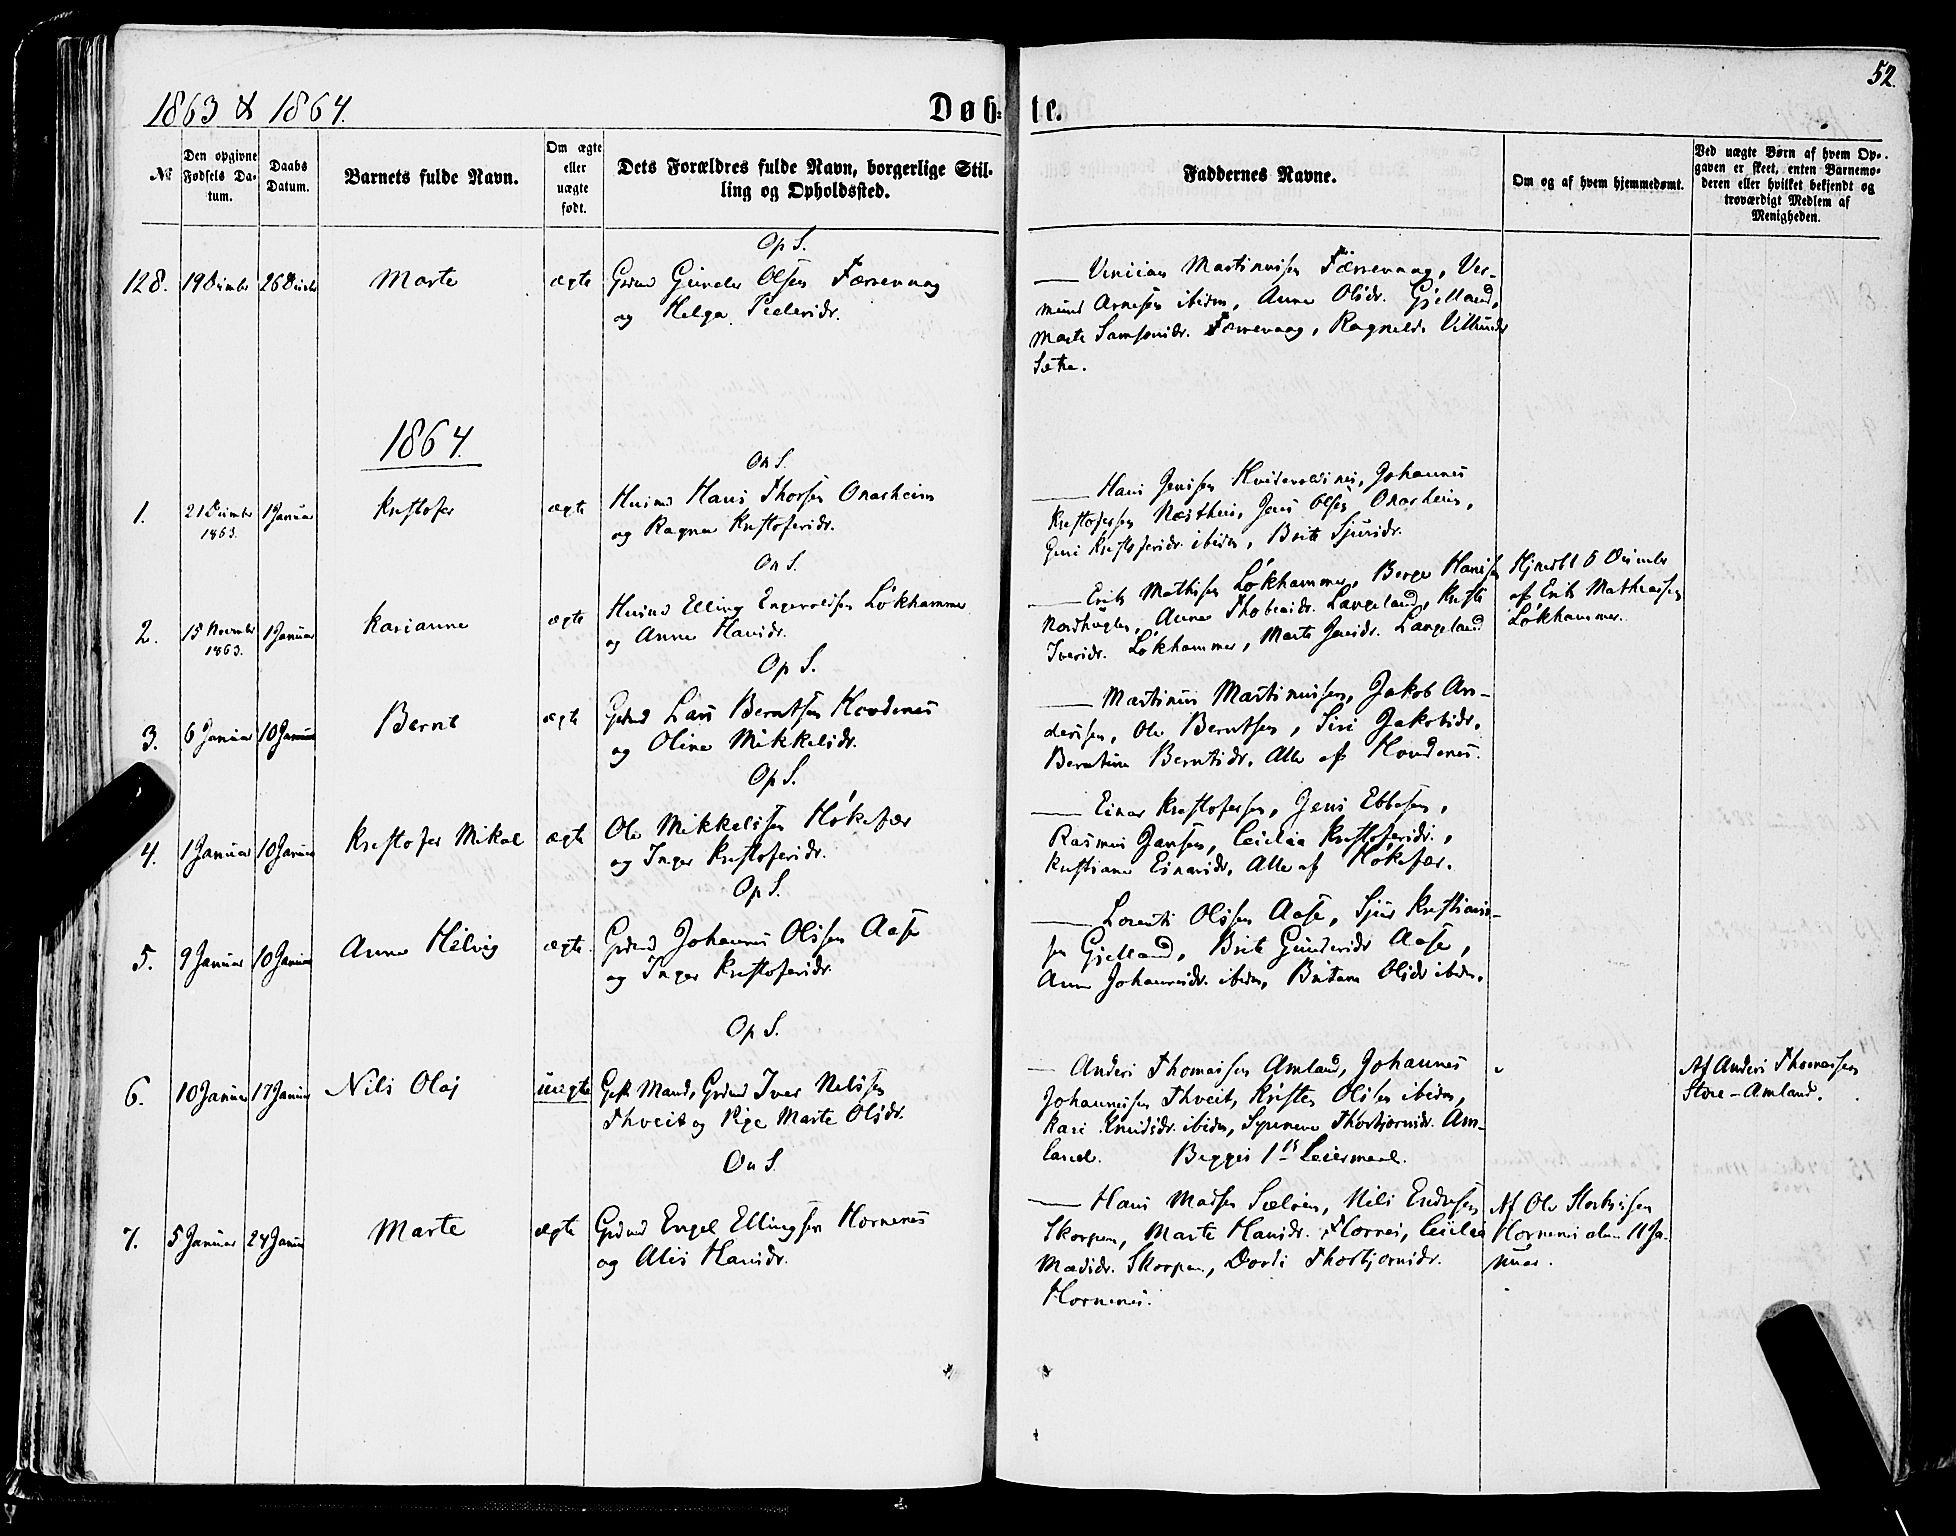 52.
1863 & 1864.
Døbte.
№
Den opgivne Fødsels Datum.
Daabs Datum.
Barnets fulde Navn.
Om ægte eller uægte født.
Dets Forældres fulde Navn, borgerlige Stilling og Opholdssted.
Faddernes Navne.
Om og af hvem hjemmedøbt.
Ved uægte Børn af hvem Opgaven er skeet, enten Barnemoderen eller hvilket bekjendt og troværdigt Medlem af Menigheden.
Op S.
128. 19 26 Marte ægte Grdmd Gunder Olsen Færevaag
og Helga Pedersdr.
Martinussen Færevaag, Ver-
mund Arnesen ibidem, Anna Olsdr. Gjelland,
Marte Samsonsdr. Færevaag, Ragnilde
Sætre.
1864.
On S.
1. 21 Decmbr 1863. 1 Januar Kristofer ægte Husmd Hans Thorsen Onarheim
og Ragna Kristofersdr.
Hans Jensen Johannes
Kristofersen Næsthus, Jens Olsen Onarheim,
Guri Kristofersdr. ibidem, Brite Sjursdr.
On S.
2. 15 Novmbr 1863. 1 Januar Karianne ægte Husmd Elling Engevoldsen Løkhammer
og Anna Hansdr.
Erik Mathisen Løkhammer, Berge Hansen
Nordhuglen, Anna Thobiasdr. Langeland, Kristi
Iversdr. Løkhammer, Marte Jensdr. Langeland
Hjmdbt 6 Decmbr
af Erik Mathiassen
Løkhammer.
Op S.
3. 6 Januar 10 Januar Bernt ægte Grdmd Lars Berntsen Hovdenes
og Oline Mikkelsdr.
Martinus Martinussen, Jakob An-
dersen, Ole Berntsen, Siri Jakobsdr.
Berntine Berntsdr. Alle af Hovdenes.
Op S.
4. 1 Januar 10 Januar Kristofer Mikal ægte Ole Mikkelsen Høkefær
og Inger Kristofersdr.
Einar Kristofersen, Jens Ebbesen,
Rasmus Jansen, Ceicilia Kristofersdr.,
Kristiane Einarsdr. Alle af Høkefær.
Op S.
5. 9 Januar 10 Januar Anna Helvig ægte Grdmd Johannes Olssen Aase
og Inger Kristofersdr.
Lorents Olssen Aase, Sjur Kristians-
sen Gjelland, Brite Gundersdr Aase,
Anna Johannesdr. ibidem, Olsdr ibidem.
Op S.
6. 10 Januar 17 Januar Nils Olaj uægte Gift Mand, Grdmd Iver Nelssen
Thveit og Pige Marte Olsdr.
Anders Thomassen Amland, Johannes
Johannessen Thveit, Kristen Olssen ibidem,
Kari Knudsdr. ibidem, Synneve Thorbjørnsdr. Am-
land. Begges 1ste Leiermaal.
Af Anders Thomassen
Store-Amland.
On S.
7. 5 Januar 24 Januar Marte ægte Grdmd Engel Ellingsen Hornenes
og Alis Hansdr.
Hans Madsen Sælen, Nils Endresen
Skorpen, Marte Hansdr. Hornes, Ceicilia
Madsdr. Skorpen, Dordi Thorbjornsdr.
Hornenes.
Af Ole
Hornenes den 11 Ja-
nuar.